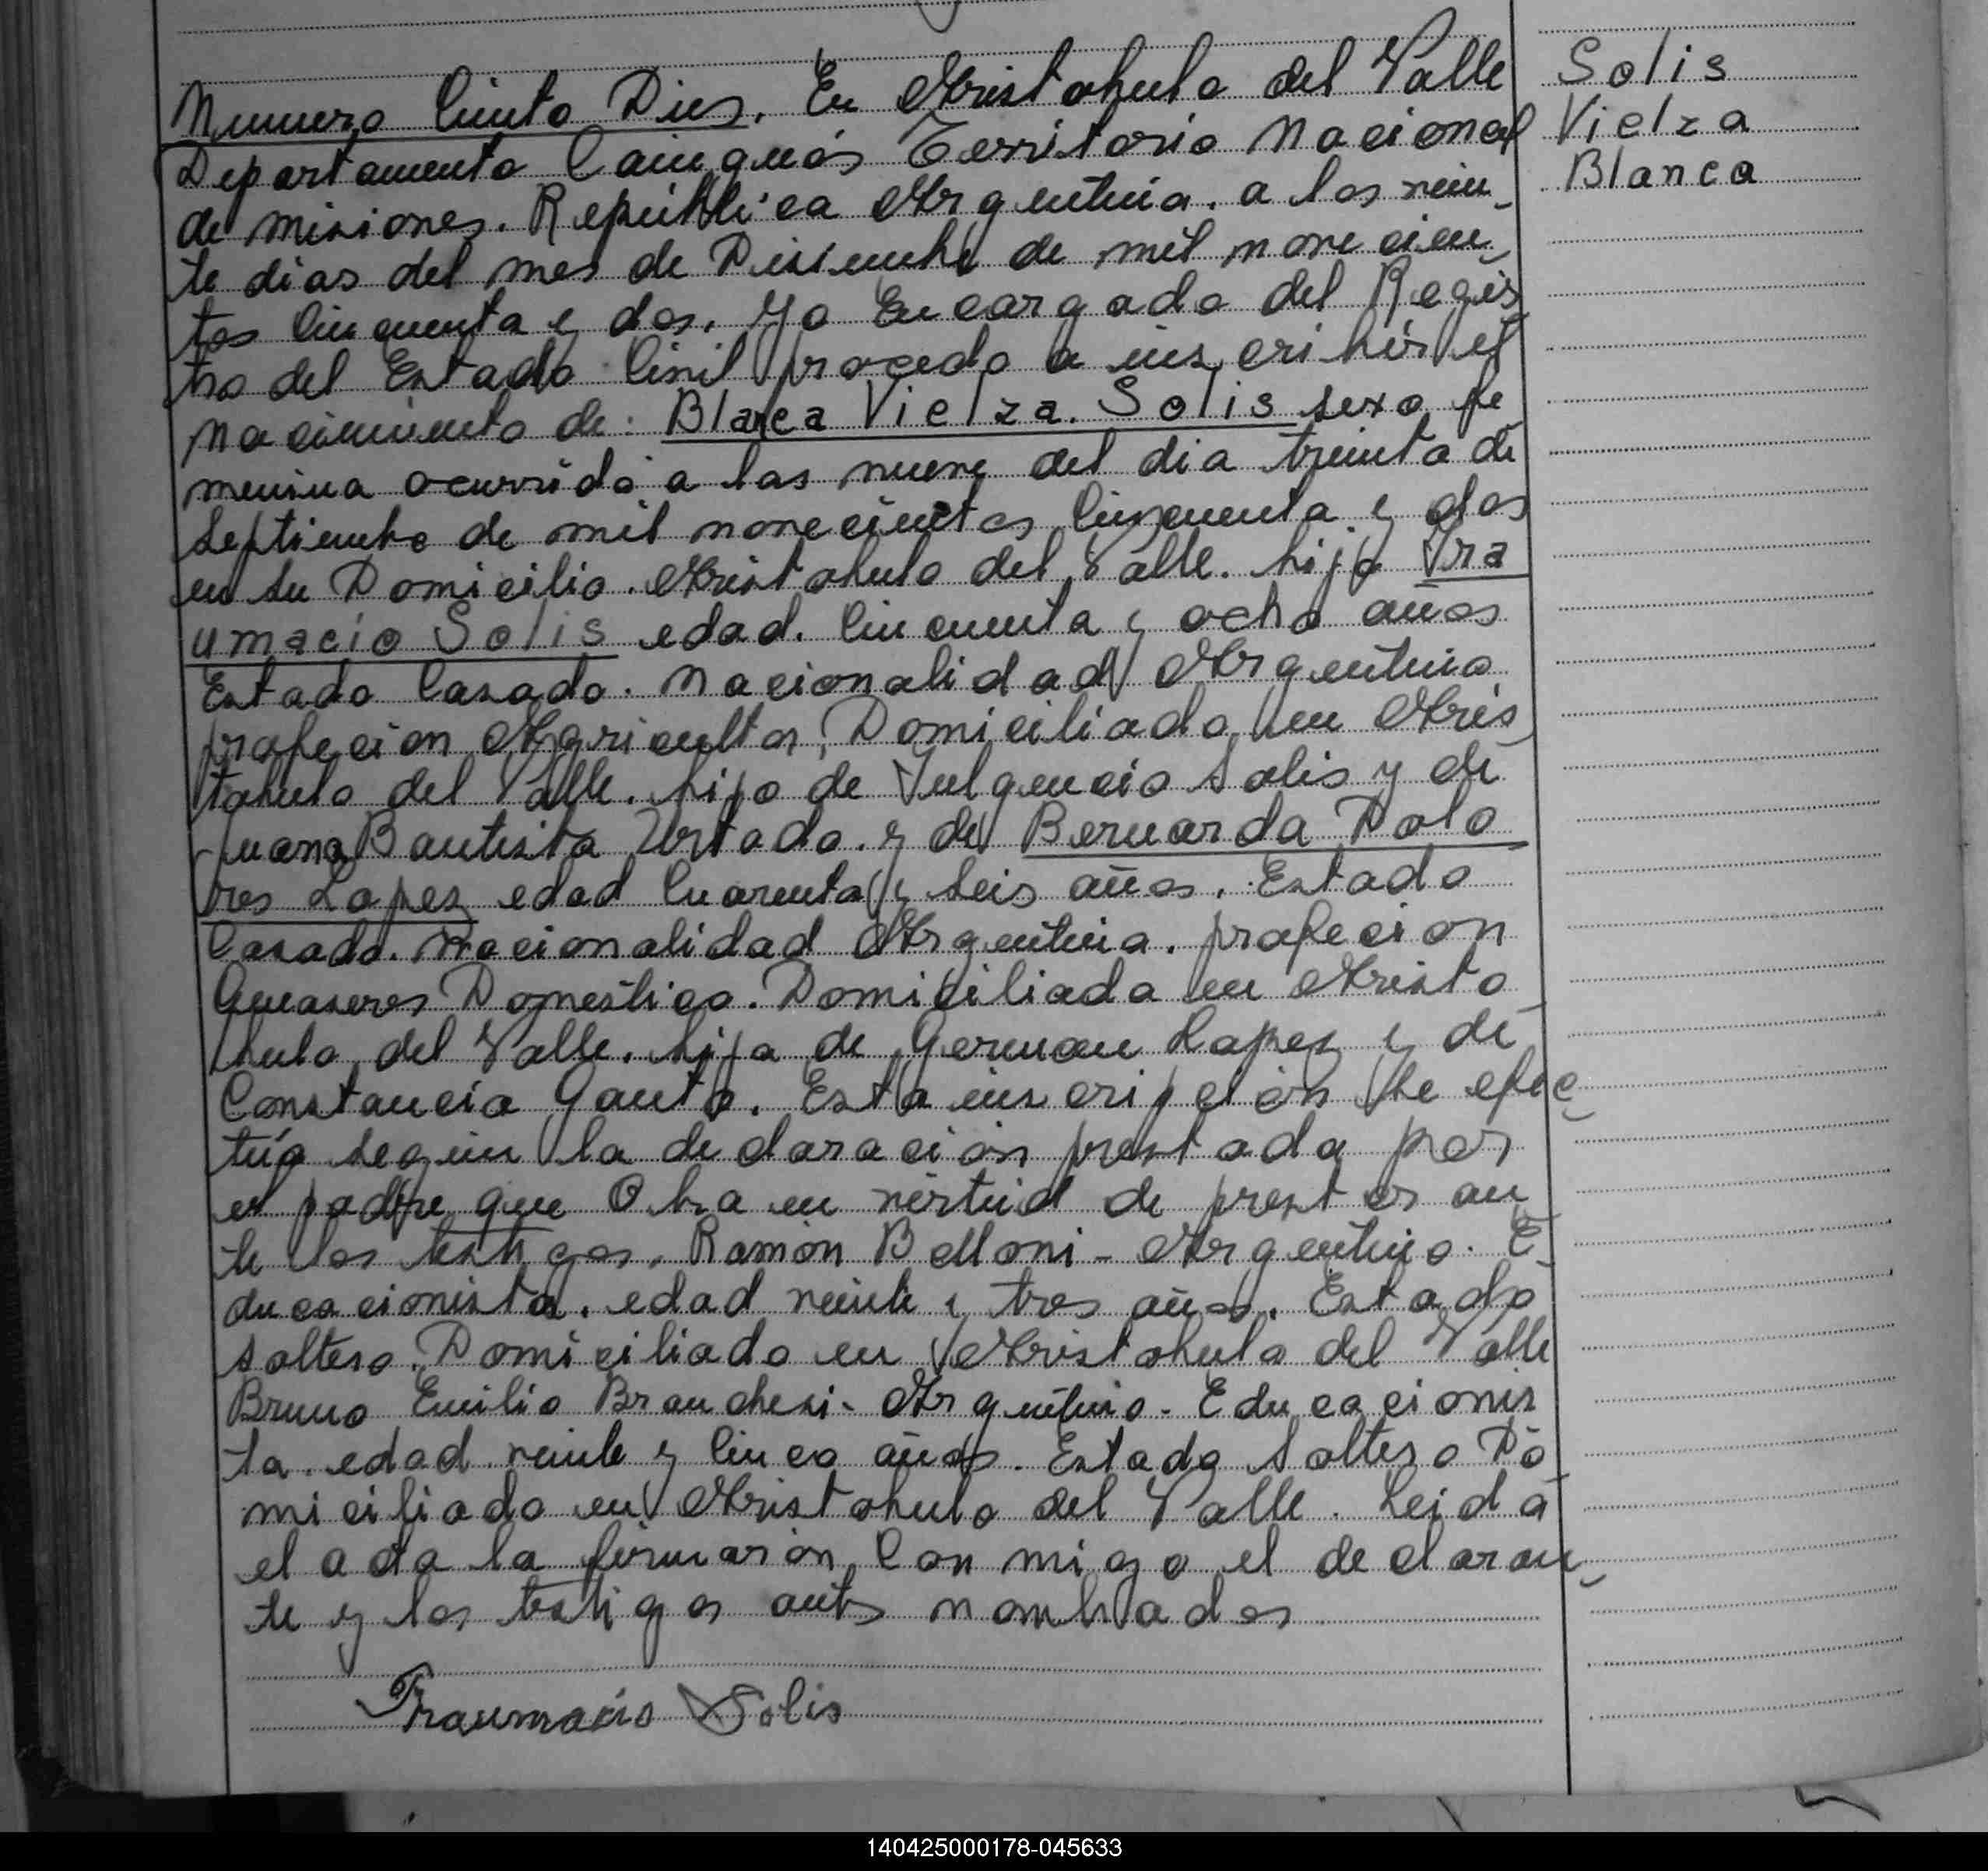 Numero Ciento Dies. En Aristobulo del Valle
Departamento Cainguás Territorio Nacional
de misiones. República Argentina. a los vein-
te dias del mes de Disiembre de mil novecien-
tos Cincuenta y dos. Yo Encargado del Regis-
tro del Estado Civil procedo a inscribir el
Nacimiento de: Blanca Vielza. Solis sexo fe
menina ocurrido a las nueve del dia treinta de
Septiembre de mil novecientos Cinquenta y dos
en su Domicilio. Aristobulo del Valle. hija Tra
umacio Solis edad. Cincuenta y ocho años
Estado Casado. Nacionalidad Argentino
profecion Agricultor, Domiciliado en Aris
tobulo del Valle. hijo de Fulgencio Solis y de
Juana Bautista Urtado. y de Bernarda Dolo
res Lopez edad Cuarenta y seis años. Estado
Casado. Nacionalidad Argentina. profecion
Queaseres Domestico. Domiciliada en Aristo
bulo del Valle. hija de German Lopez y de
Constancia Gauto. Esta inscripción se efec-
túa según la declaración prestada por
el padre que Obra en virtud de prest os an
te los testigos. Ramón Belloni - Argentino. E-
ducacionista. edad veinte y tres años. Estado
soltero. Domiciliado en Aristobulo del Valle
Bruno Emilio Branchesi - Argentino - Educacionis
ta. edad veinte y cinco años. Estado Soltero Do
miciliado en Aristobulo del Valle. Leida
el acta la firmarón Conmigo el declaran-
te y los testigos antes nombrados
Traumacio Solis
Solis
Vielza
Blanca
140425000178-045633